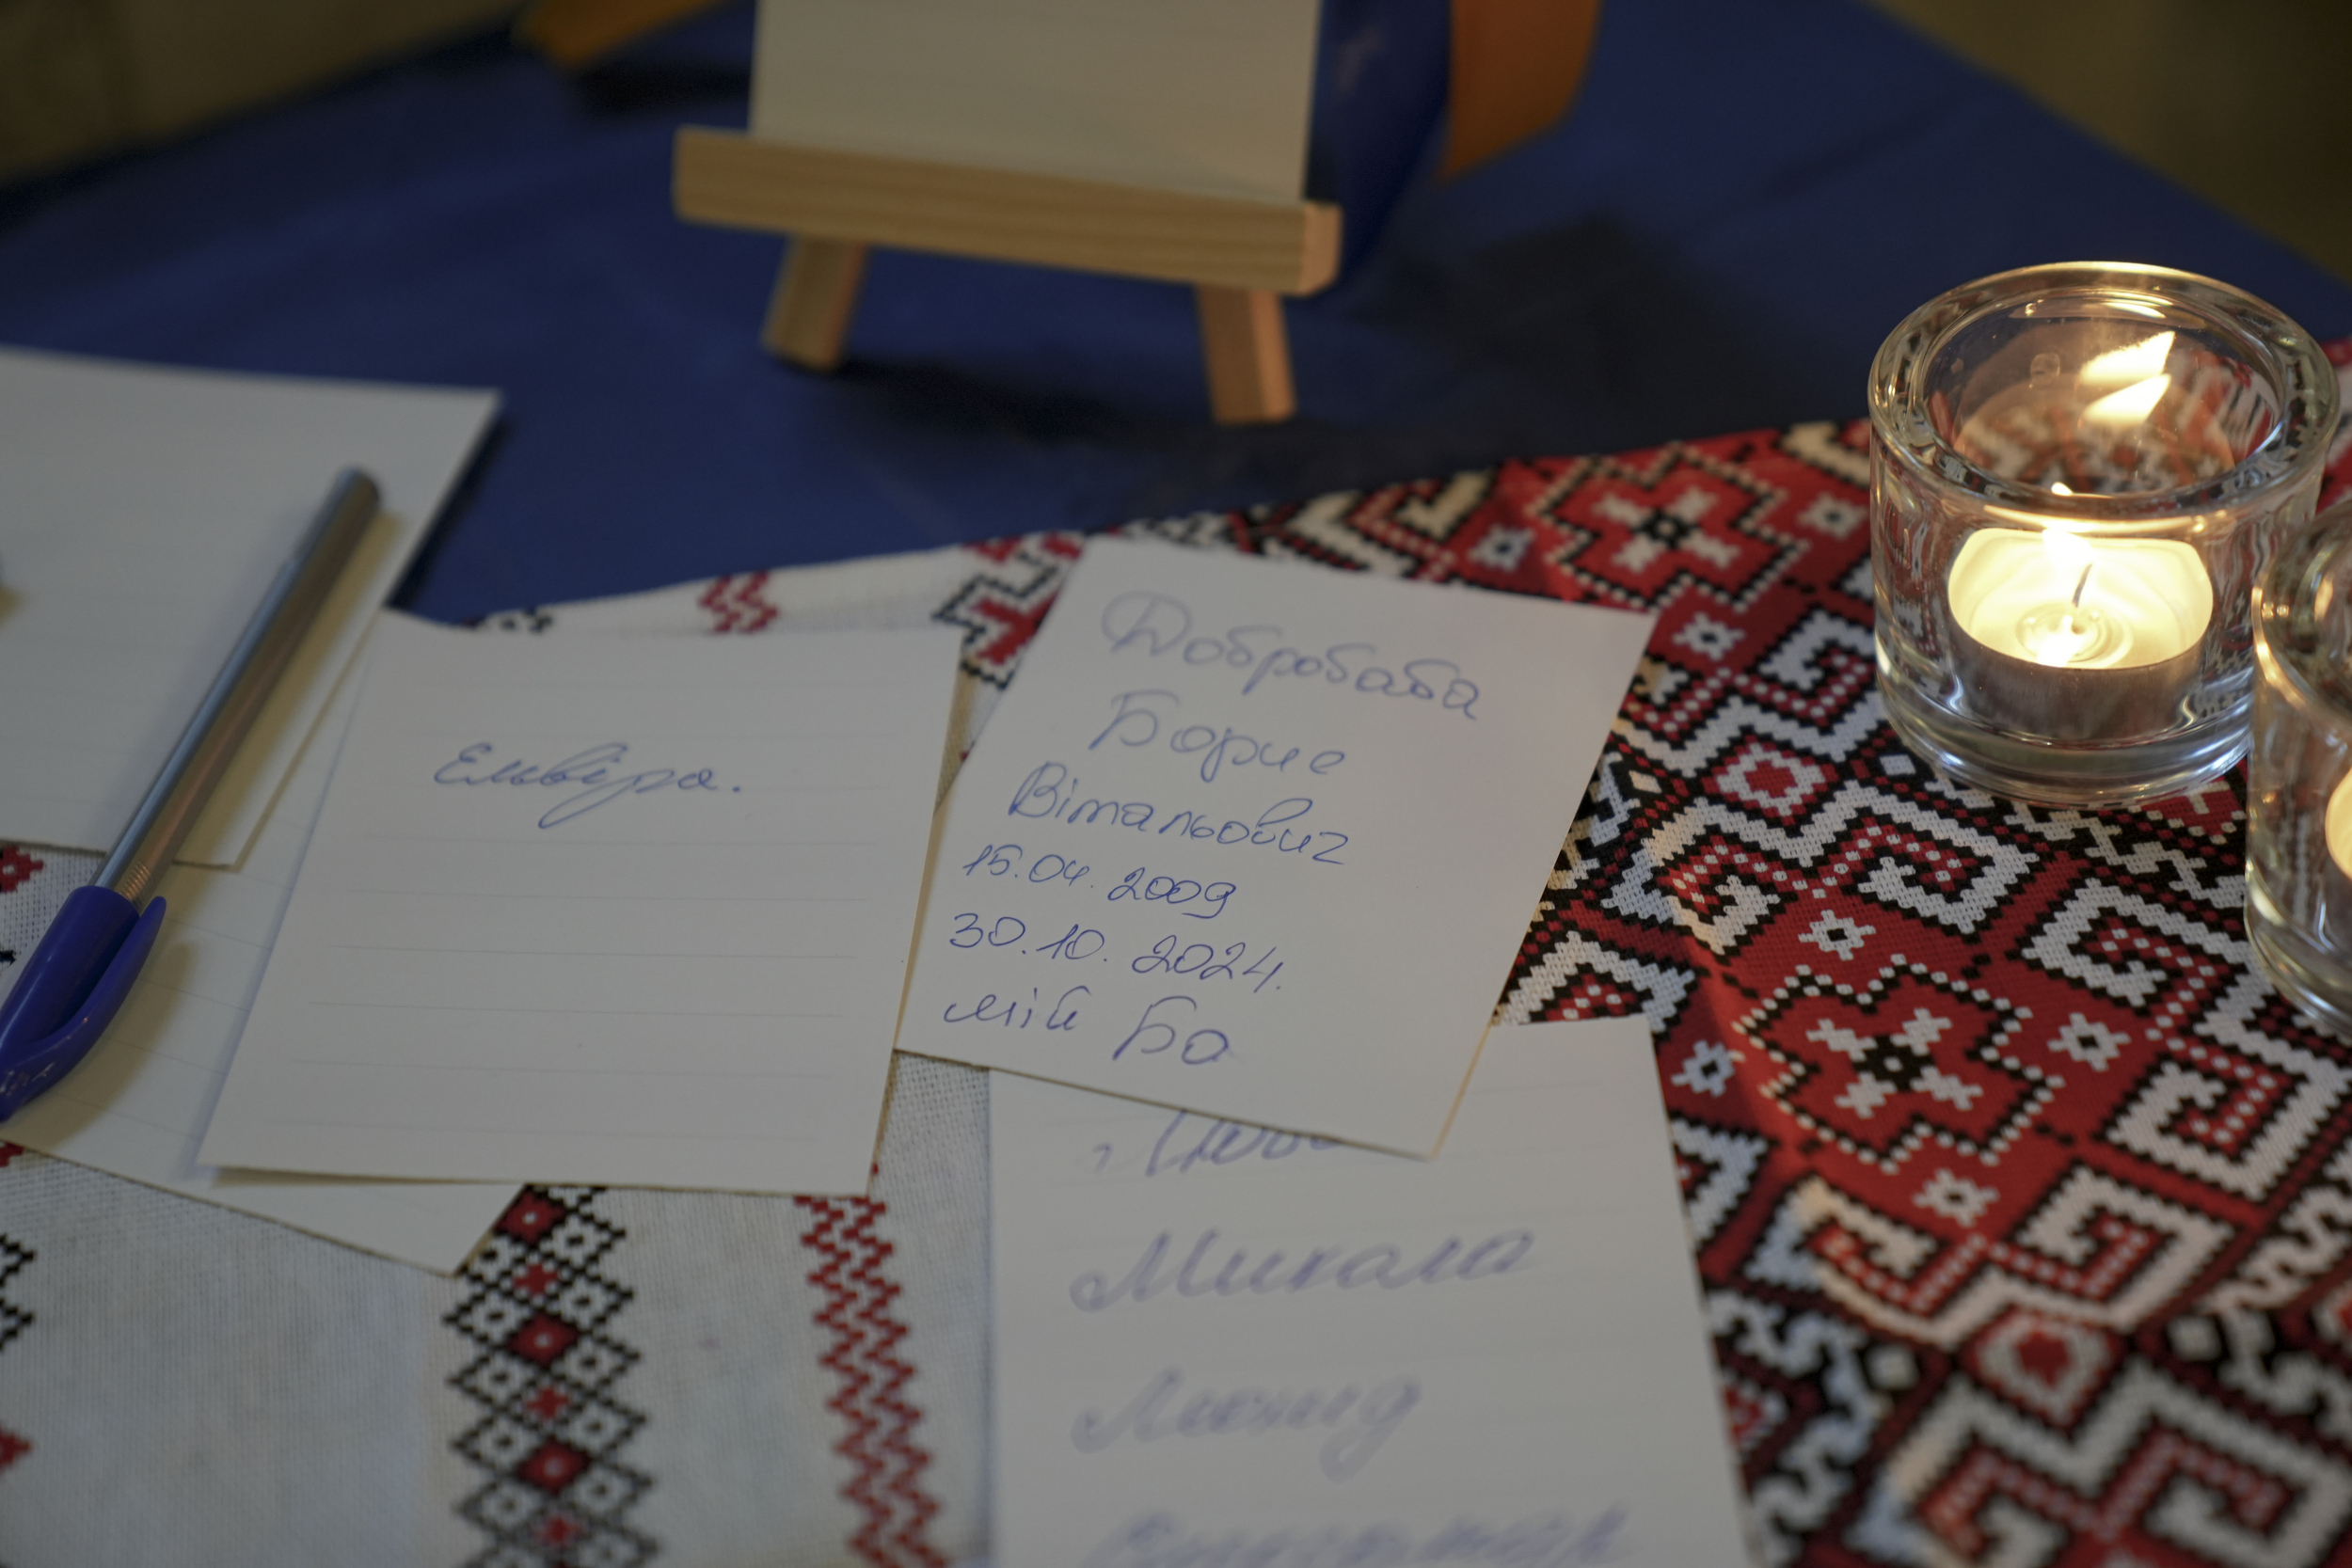 Ельвіра.
Добробаба
Борис
Вітальович
15.04.2009
30.10.2024.
мій Бо
Микола
Леонід